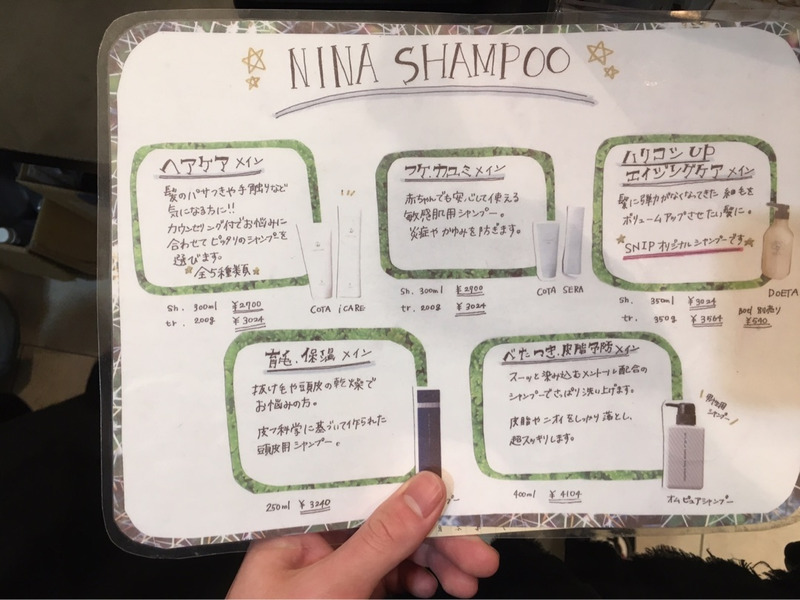 NINA SHAMPOO
ヘアケア メイン
髪のパサつきや手触りなど
気になる方に!!
カウンセリング付でお悩みに
合わせてピッタリのシャンプーを
選びます。
全5種類
sh. 300ml ¥2700
tr. 200g ¥3024
COTA iCARE
フケ.カユミ メイン
赤ちゃんでも安心して使える
敏感肌用シャンプー。
炎症やかゆみを防ぎます。
sh. 300ml ¥2900
tr. 200g ¥3024
COTA SERA
ハリコシUP
エイジングケア メイン
髪に弾力がなくなってきた細毛を
ボリュームアップさせたい髪に。
SNIPオリジナルシャンプーです
sh. 350ml ¥3024
tr. 350g ¥3564
¥540
DOETA
育毛.保湿 メイン
抜け毛や頭皮の乾燥で
お悩みの方。
皮フ科学に基づいて作られた
頭皮用シャンプー。
250ml ¥3240
べたつき.皮脂予防メイン
スーッと染み込むメントール配合の
シャンプーでさっぱり洗い上げます。
皮脂やニオイをしっかり落とし、
超スッキリします。
400ml ¥4104
男性用
シャンプー
オムピュアシャンプー